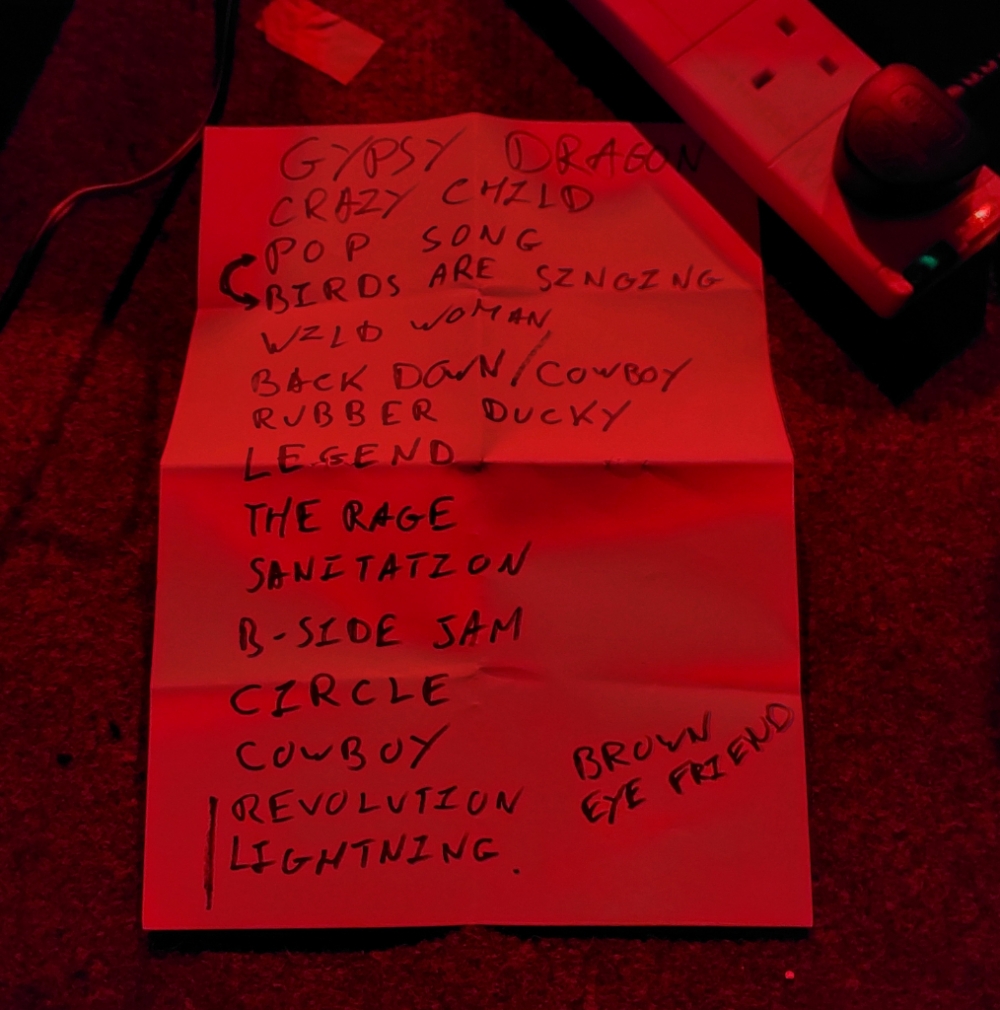 GYPSY DRAGON
CRAZY CHILD
POP SONG
BIRDS ARE SINGING
WILD WOMAN
BACK DOWN/COWBOY
RUBBER DUCKY
LEGEND
THE RAGE
SANITATION
B-SIDE JAM
CIRCLE
COWBOY
REVOLUTION
LIGHTNING.
BROWN
EYE FRIEND